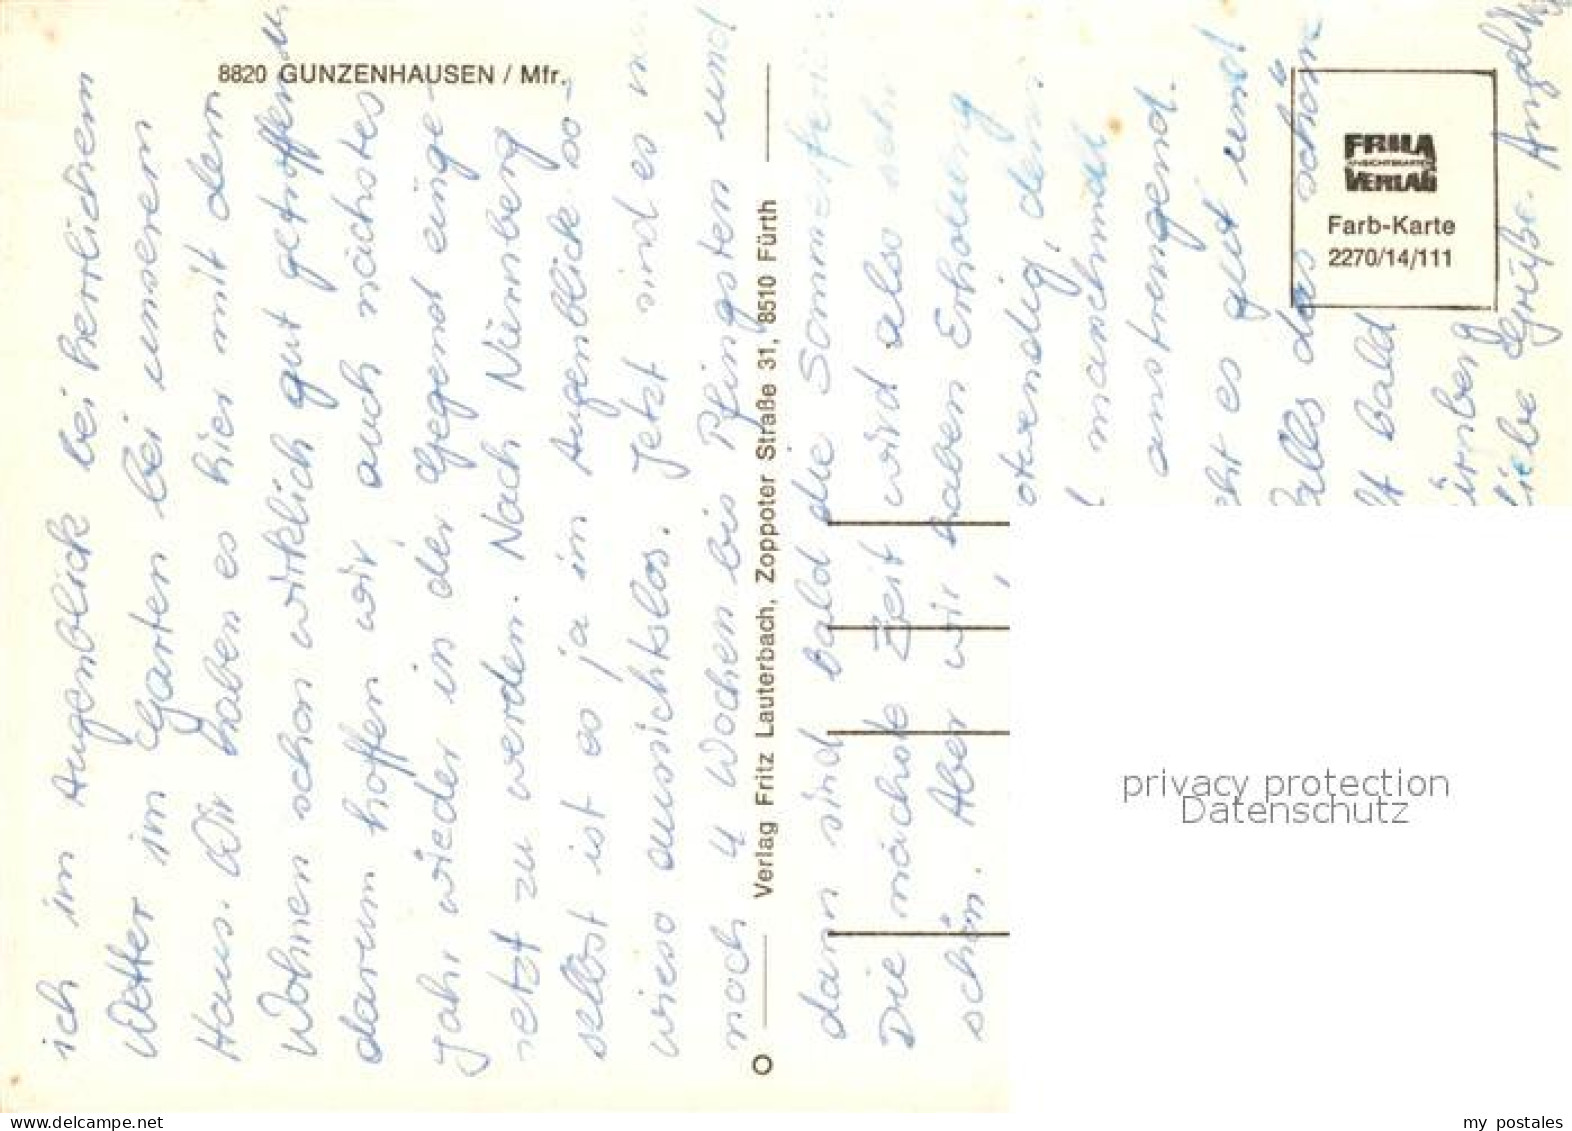 8820 GUNZENHAUSEN / Mfr.
ich im Augenblick bei herrlichem
Wetter im Garten bei unserem
Haus. Wir haben es hier mit dem
Wohnen schon wirklich gut getroffen u
darum hoffen wir auch nächstes
Jahr wieder in der Gegend einge-
setzt zu werden. Nach Nürnberg
selbst ist es ja im Augenblick so-
wieso aussichtslos. Jetzt sind es
noch 4 Wochen bis Pfingsten und
Verlag Fritz Lauterbach, Zoppoter Straße 31, 8510 Fürth
dann sind bald die Sommerferien.
Die nächste Zeit wird also sehr
schön. Aber wir haben Erholung
otwendig, denn
manchmal
anstrengend.
cht es gut und
falls das schöne
lt bald
ürnberg
liebe Grüße
FRILA
ANSICHTSKARTEN
VERLAG
Farb-Karte
2270/14/111
privacy protection
Datenschutz
my postales
www.delcampe.net